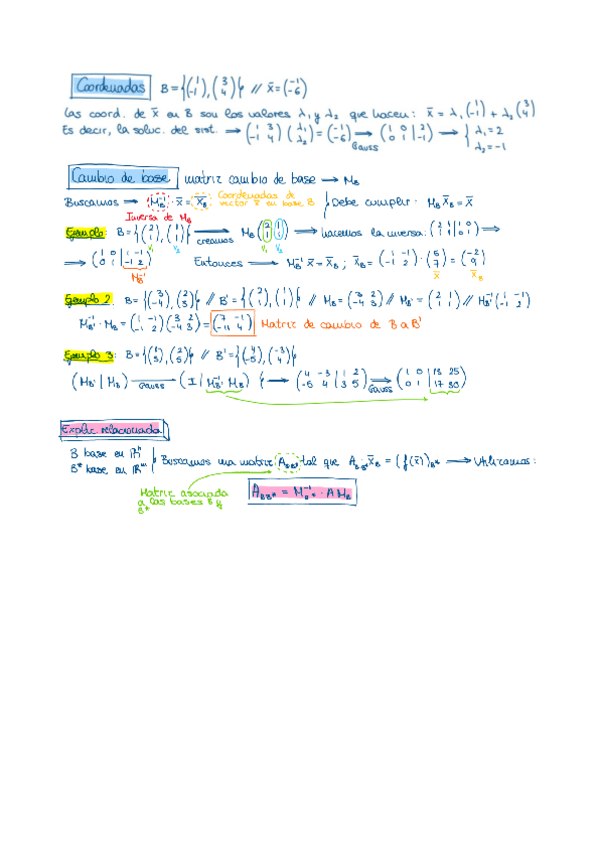 Coordenadas B = {(1 -1), (3 4)} // x̄ = (-1 -6)
Las coord. de x̄ en B son los valores λ₁ y λ₂ que hacen: x̄ = λ₁ (1 -1) + λ₂ (3 4)
Es decir, la soluc. del sist. → (1 3 -1 4) (λ₁ λ₂) = (-1 -6) → (1 0 0 1 | 2 -1) → { λ₁ = 2 λ₂ = -1
Gauss
Cambio de base matriz cambio de base → M_B
Buscamos → M_B⁻¹ · x̄ = x̄_B : Coordenadas de vector x̄ en base B } Debe cumplir: M_B x̄_B = x̄
Inversa de M_B
Ejemplo: B = {(2 1), (1 1)} → creamos M_B (2 1 1 1) → hacemos la inversa: (2 1 1 1 | 1 0 0 1) →
V₁ V₂ V₁ V₂
→ (1 0 0 1 | 1 -1 -1 2) Entonces → M_B⁻¹ x̄ = x̄_B ; x̄_B = (1 -1 -1 2) · (5 7) = (-2 9)
M_B⁻¹ x̄ x̄_B
Ejemplo 2: B = {(3 -4), (2 3)} // B' = {(2 1), (1 1)} // M_B = (3 2 -4 3) // M_B' = (2 1 1 1) // M_B'⁻¹ (1 -1 -1 2)
M_B'⁻¹ · M_B = (1 -1 -1 2) (3 2 -4 3) = (7 -1 -11 4) Matriz de cambio de B a B'
Ejemplo 3: B = {(1 3), (2 5)} // B' = {(4 -5), (-3 4)}
(M_B' | M_B) → Gauss (I | M_B'⁻¹ M_B) } → (4 -3 -5 4 | 1 2 3 5) → Gauss (1 0 0 1 | 13 23 17 30)
Explic. relacionada
B base en ℝⁿ
B* base en ℝᵐ } Buscamos una matriz A_BB* tal que A_BB* x̄_B = (f(x̄))_B* → Utilizamos:
Matriz asociada a las bases B y B*
A_BB* = M_B*⁻¹ · A M_B